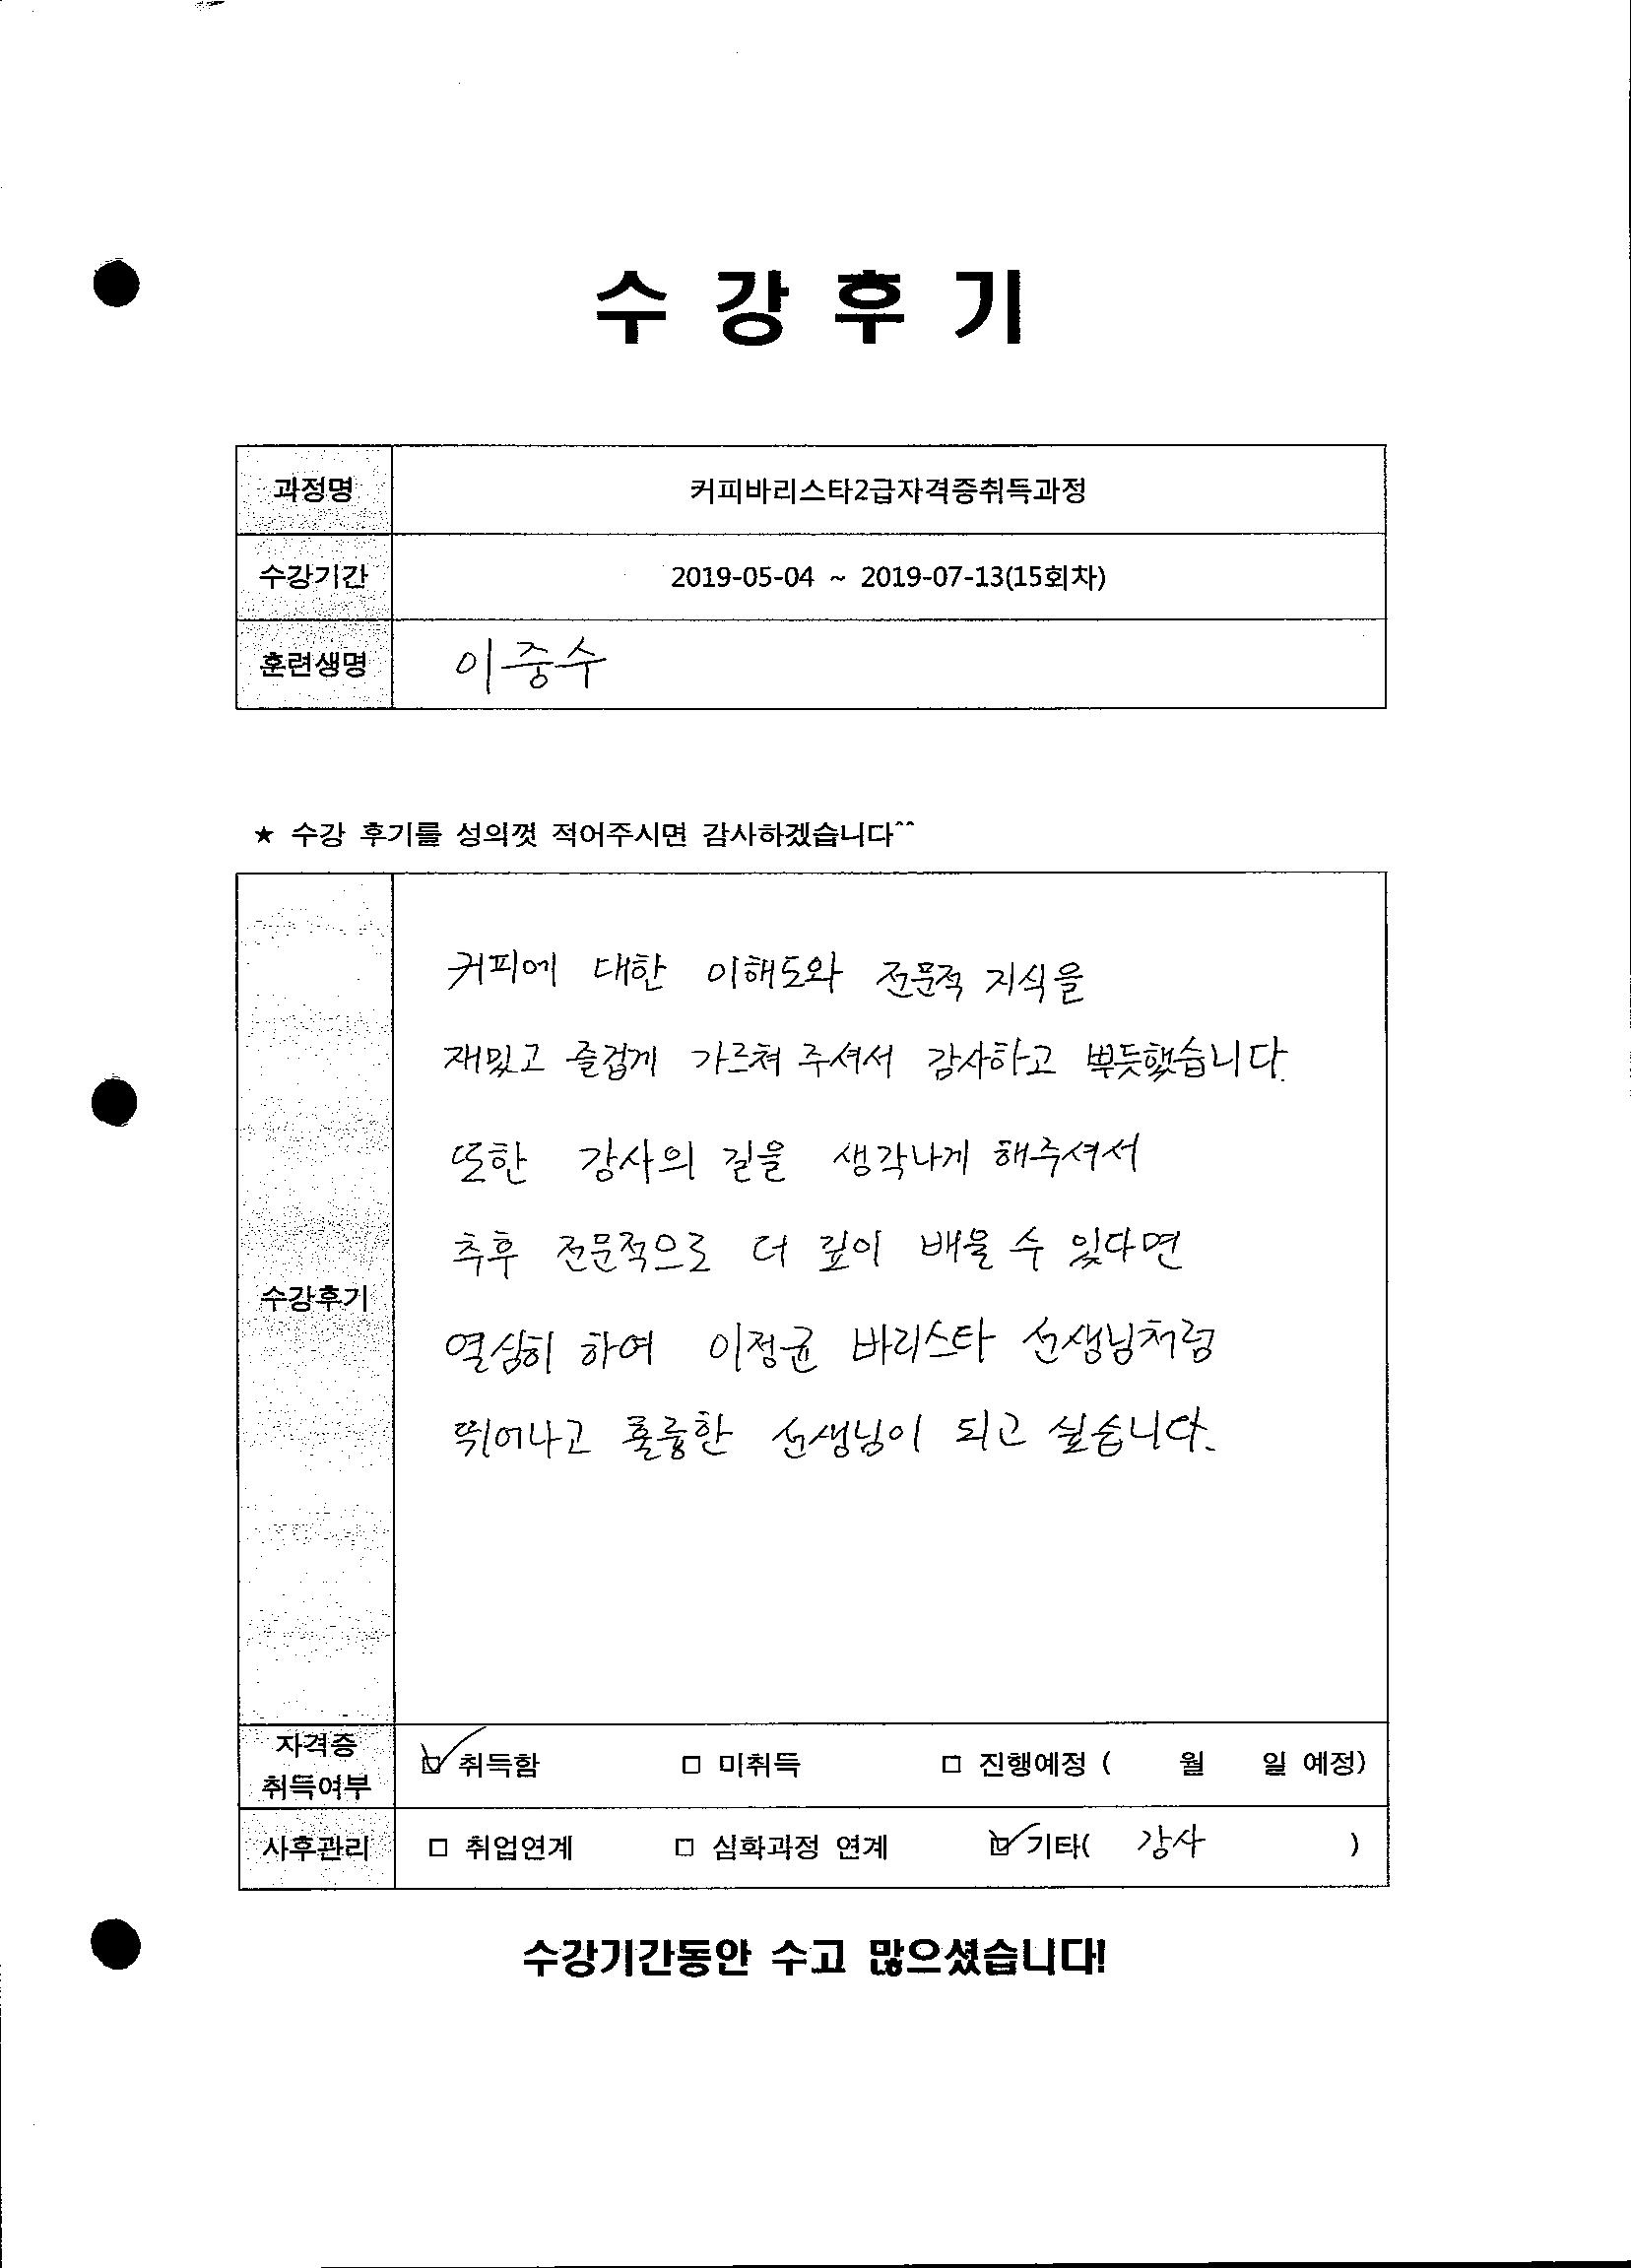 수 강 후 기
과정명 커피바리스타2급자격증취득과정
수강기간 2019-05-04 ~ 2019-07-13(15회차)
훈련생명 이중수
★ 수강 후기를 성의껏 적어주시면 감사하겠습니다^^
커피에 대한 이해도와 전문적 지식을
재밌고 즐겁게 가르쳐 주셔서 감사하고 뿌듯했습니다.
또한 강사의 길을 생각나게 해주셔서
추후 전문적으로 더 깊이 배울 수 있다면
수강후기
열심히 하여 이정균 바리스타 선생님처럼
뛰어나고 훌륭한 선생님이 되고 싶습니다.
자격증
취득여부 ☑ 취득함 □ 미취득 □ 진행예정 ( 월 일 예정)
사후관리 □ 취업연계 □ 심화과정 연계 ☑ 기타( 강사 )
수강기간동안 수고 많으셨습니다!